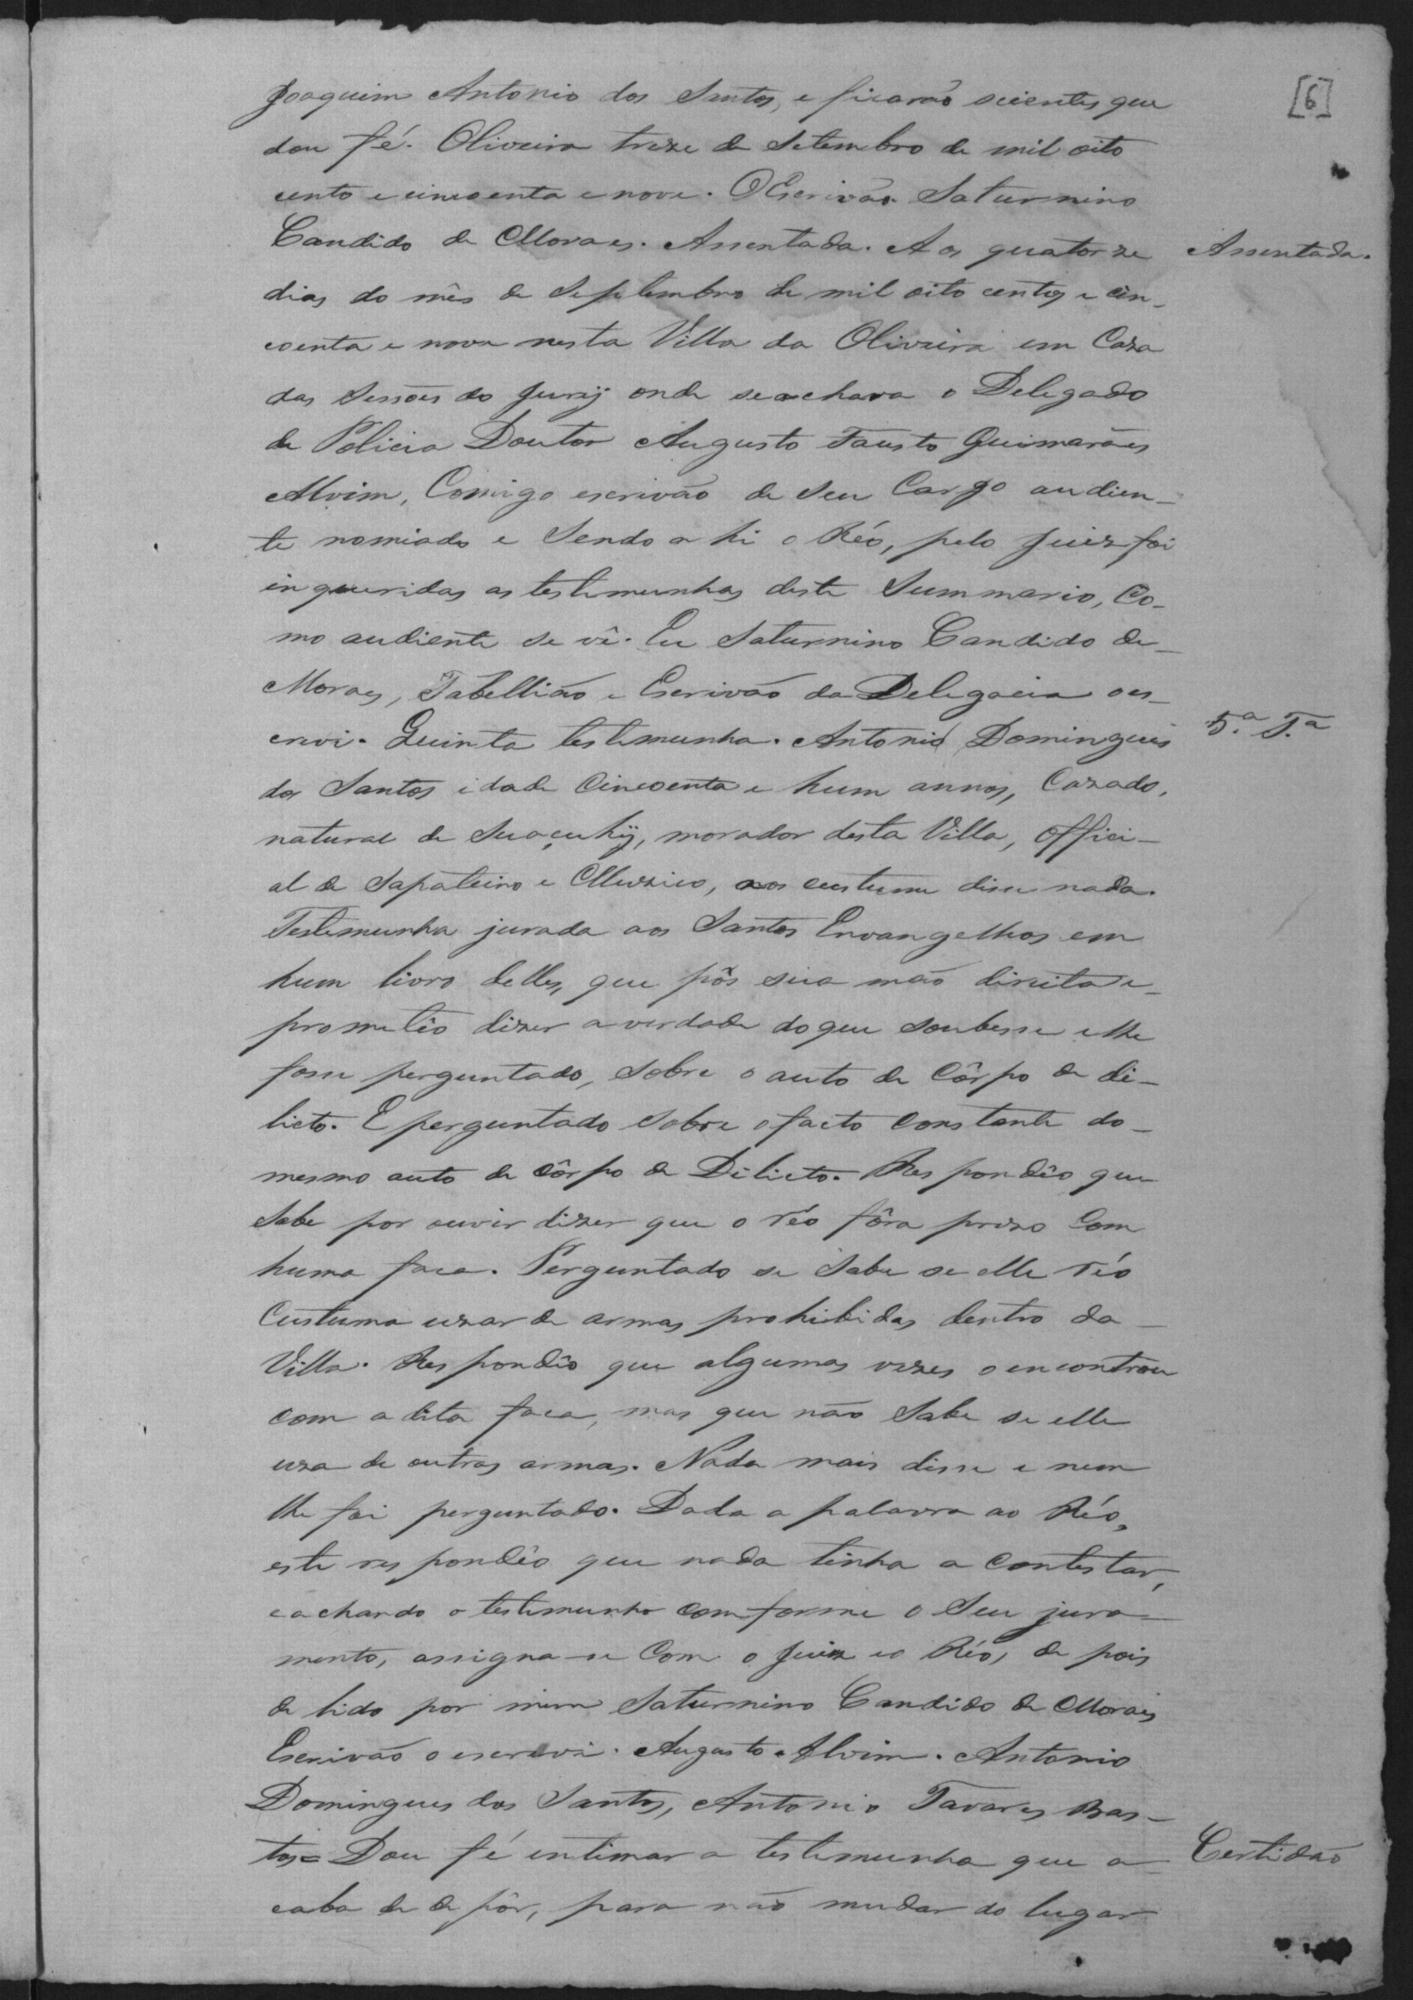 [6]
Joaquim Antonio dos Santos, e ficarão scientes que
dou fé. Oliveira treze de Setembro de mil oito
cento e cincoenta e nove. O Escrivão Saturnino
Candido de Moraes. Assentada. Aos quatorze
Assentada.
dias do mês de Septembro de mil oito centos e cin-
coenta e nove nesta Villa da Oliveira em Caza
das Sessões do Jury onde se achava o Delegado
de Policia Doutor Augusto Fausto Guimarães
Alvim, Comigo escrivão de seu Cargo audien-
te nomiado e Sendo a hi o Réo, pelo Juiz foi
inqueridas as testimunhas deste Summario, Co-
mo audiente se vê. Eu Saturnino Candido de-
Moraes, Tabellião e Escrivão da Delegacia o es-
crevi. Quinta testimunha. Antonio Domingues
5.ª T.ª
dos Santos idade Cincoenta e hum annos, Cazado,
natural de Suaçuhÿ, morador desta Villa, Offici-
al de Sapateiro e Muzico, aos custume disse nada.
Testimunha jurada aos Santos Envangelhos em
hum livro delles, que pôs sua mão direita e-
prometêo dizer a verdade do que Soubesse e lhe
fosse perguntado, Sobre o auto de Côrpo de di-
licto. E perguntado Sobre o facto constante do-
mesmo auto de Côrpo de Dilicto. Respondêo que
Sabe por ouvir dizer que o réo fôra prezo Com
huma faca. Perguntado se Sabe se elle réo
Custuma uzar de armas prohibidas dentro da-
Villa. Respondêo que algumas vezes o encontrou
com a dita faca, mas que não Sabe se elle
uza de outras armas. Nada mais disse e nem
lhe foi perguntado. Dada a palavra ao Réo,
este respondêo que nada tinha a contestar,
e achando o testimunho comforme o Seu jura-
mento, assigna-se Com o Juiz e o Réo, de pois
de lido por mim Saturnino Candido de Moraes
Escrivão o escrevi. Augusto Alvim. Antonio
Domingues dos Santos, Antonio Tavares Bas-
tos= Dou fé intimar a testimunha que a-
Certidão
caba de de pôr, para não mudar do lugar